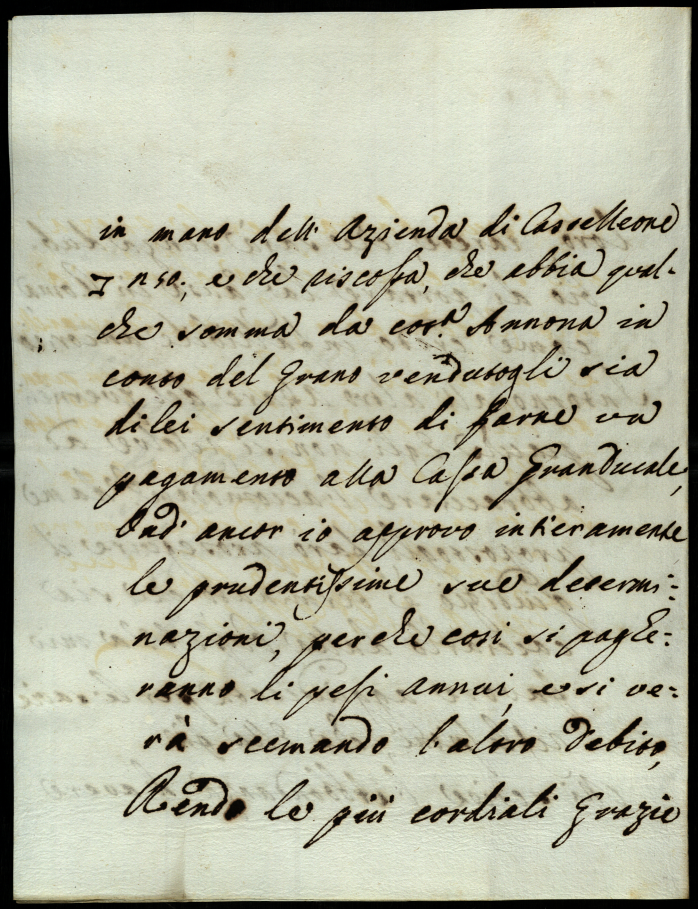 in mano dell' Azienda di Castelleone
e che riscossa, che abbia qual-
che somma da cot.ª Annona in
conto del Grano vendutogli sia
di lei sentimento di farne un
pagamento alla Cassa Granducale,
Ond' ancor io approvo intieramente
le prudentissime sue determi-
nazioni, perche così si paghe-
ranno li pesi annui, e si ve-
rà scemando l'altro debito,
Rendo le più cordiali Grazie